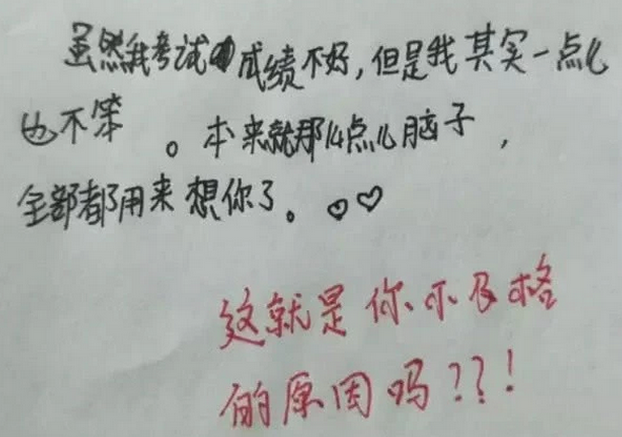 虽然我考试成绩不好，但是我其实一点儿
也不笨。本来就那么点儿脑子，
全部都用来想你了。♡♡
这就是你不及格
的原因吗？？！